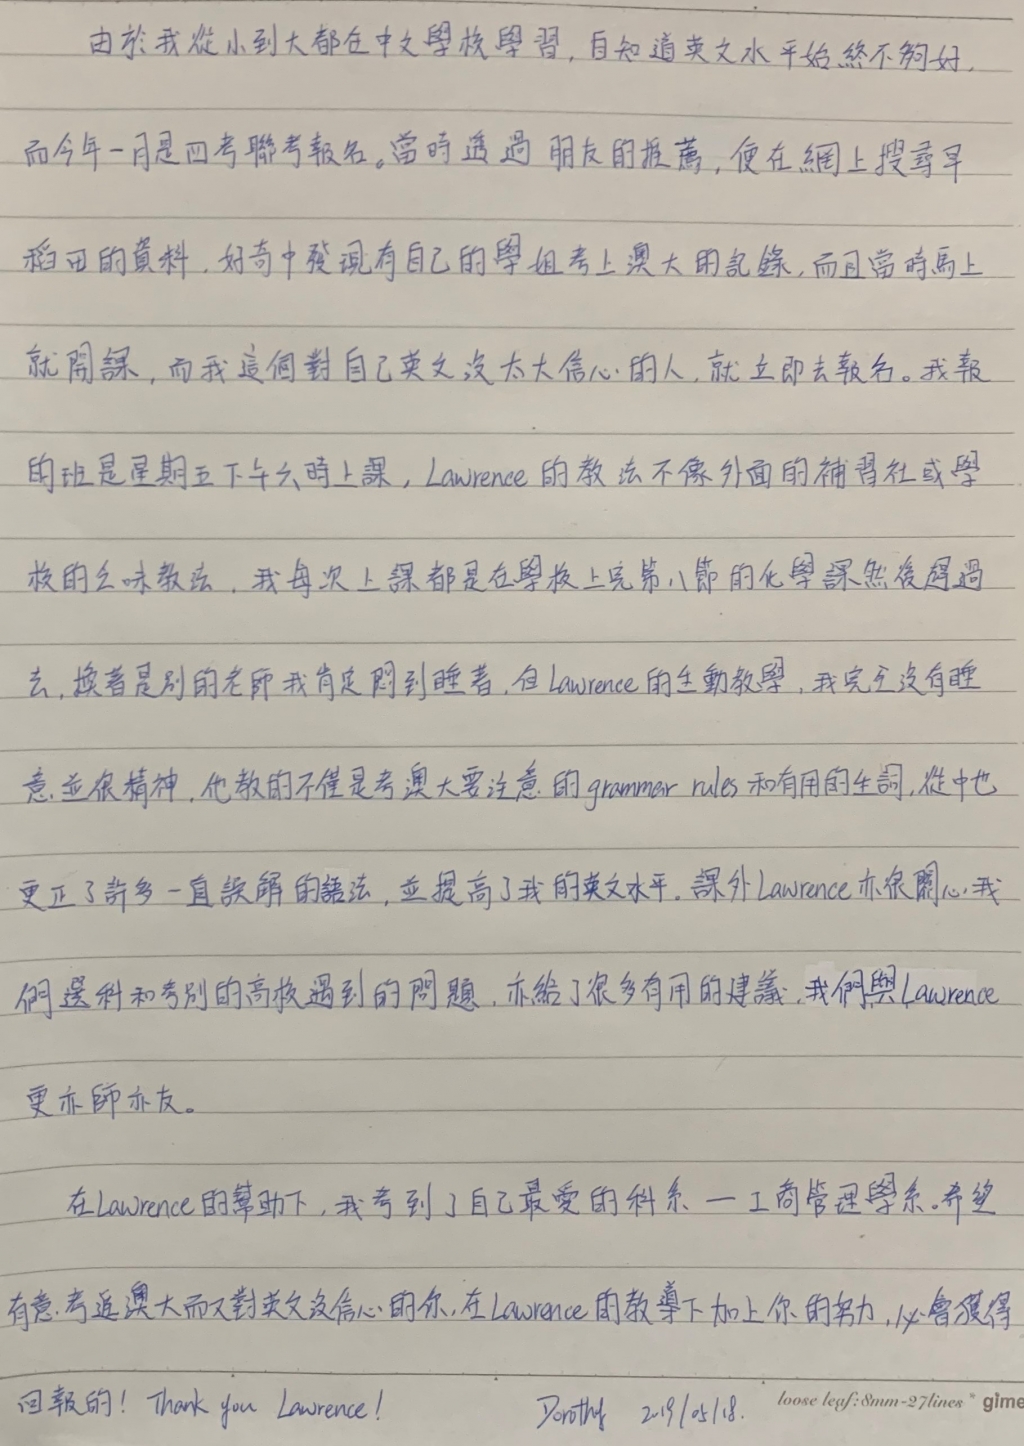 由於我從小到大都在中文學校學習，自知道英文水平始終不夠好，
而今年一月是四考聯考報名。當時透過朋友的推薦，便在網上搜尋早
稻田的資料，好奇中發現有自己的學姐考上澳大的記錄，而且當時馬上
就開課，而我這個對自己英文沒太大信心的人，就立即去報名。我報
的班是星期五下午六時上課，Lawrence的教法不像外面的補習社或學
校的乏味教法，我每次上課都是在學校上完第八節的化學課然後趕過
去，換著是別的老師我肯定悶到睡著，但Lawrence的生動教學，我完全沒有睡
意並很精神，他教的不僅是考澳大要注意的grammar rules和有用的生詞，從中也
更正了許多一直誤解的語法，並提高了我的英文水平。課外Lawrence亦很關心我
們選科和考別的高校遇到的問題，亦給了很多有用的建議，我們與Lawrence
更亦師亦友。
在Lawrence的幫助下，我考到了自己最愛的科系—工商管理學系。希望
有意考返澳大而又對英文沒信心的你，在Lawrence的教導下加上你的努力，必會獲得
回報的！Thank you Lawrence!
Dorothy 2019/05/18.
loose leaf:8mm-27lines * gime